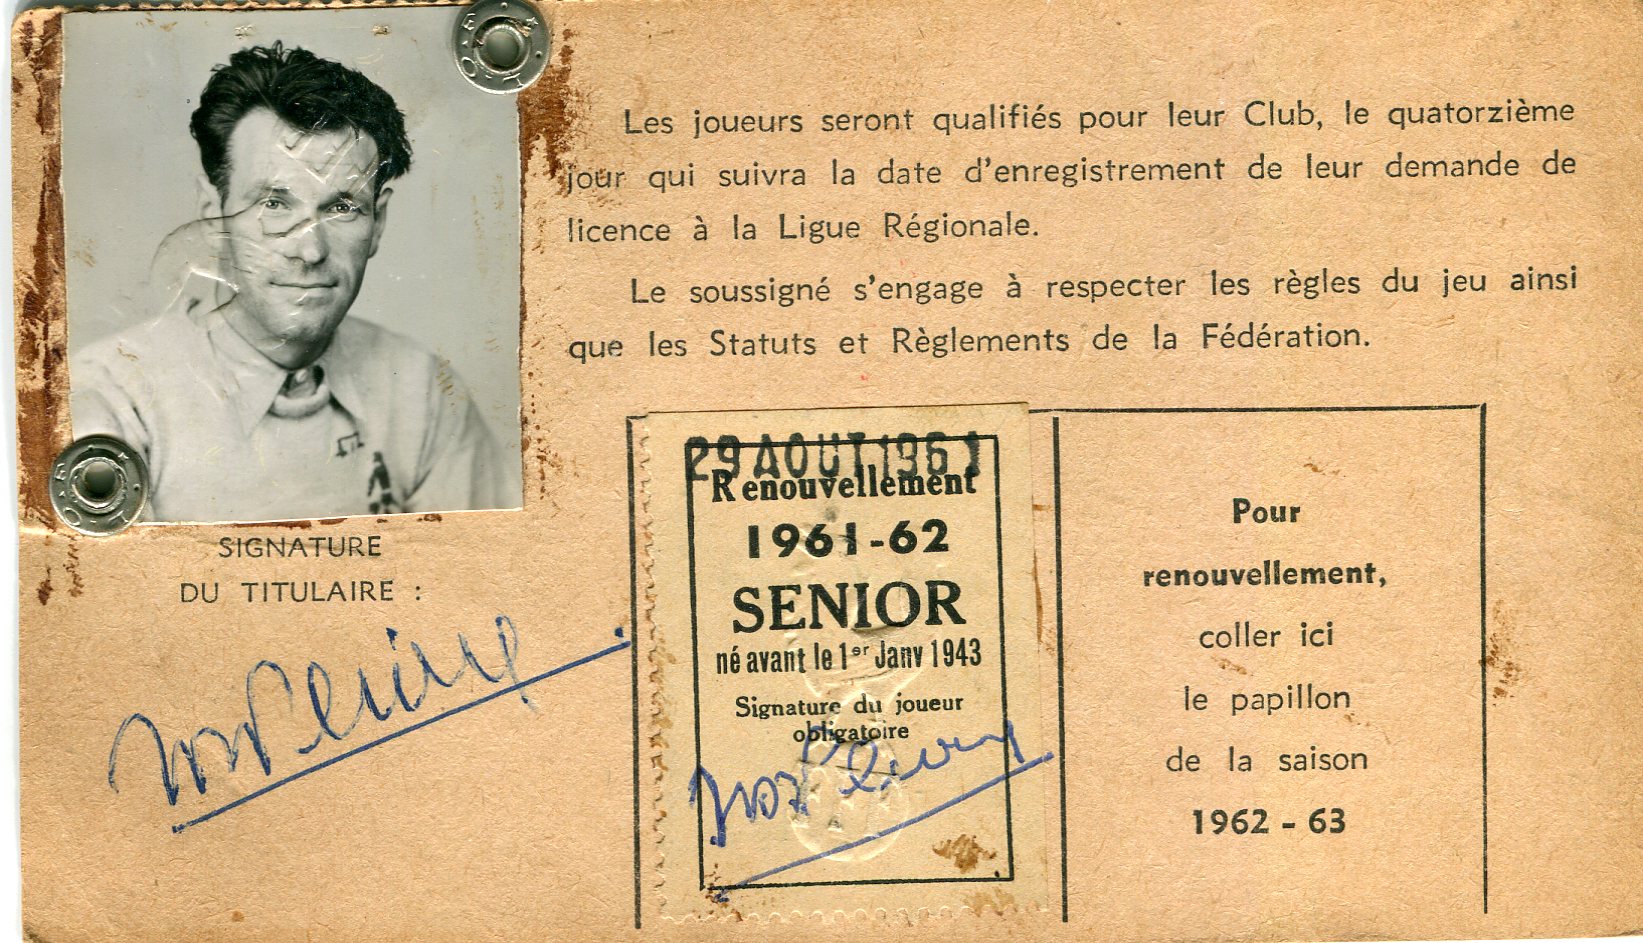 Les joueurs seront qualifiés pour leur Club, le quatorzième
jour qui suivra la date d'enregistrement de leur demande de
licence à la Ligue Régionale.
Le soussigné s'engage à respecter les règles du jeu ainsi
que les Statuts et Règlements de la Fédération.
SIGNATURE
DU TITULAIRE :
29 AOUT 1961
Renouvellement
1961-62
SENIOR
né avant le 1er Janv 1943
Signature du joueur
obligatoire
Pour
renouvellement,
coller ici
le papillon
de la saison
1962 - 63